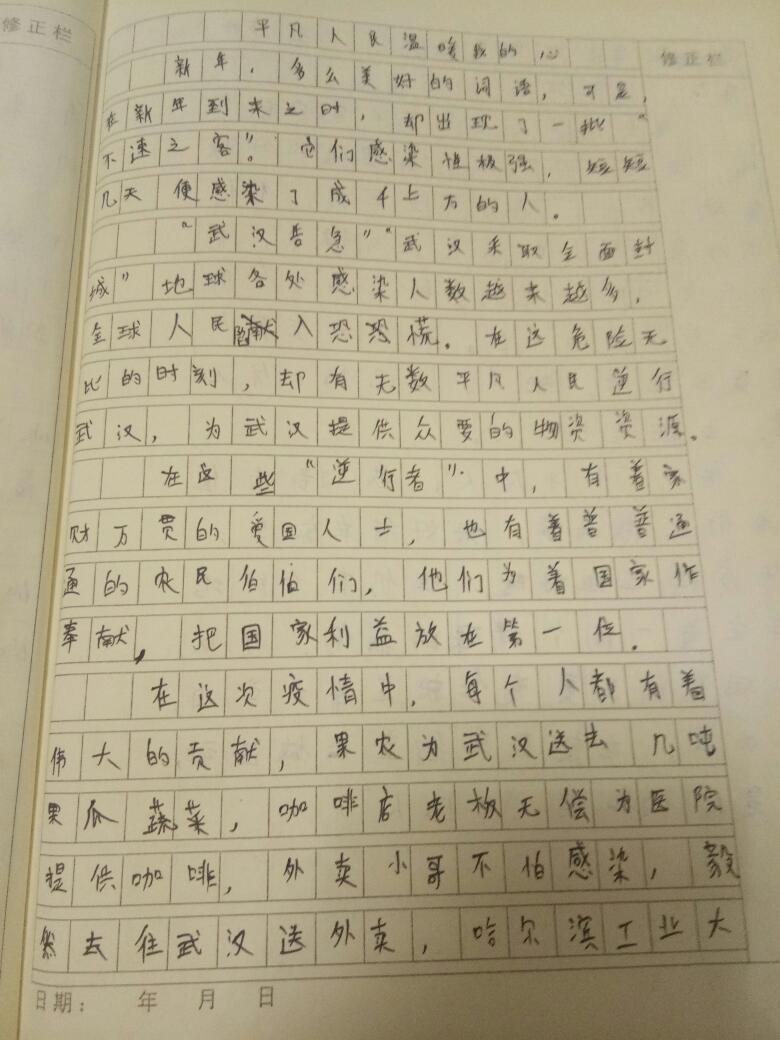 修正栏
平凡人民温暖我的心
修正栏
新年，多么美好的词语，可是，
在新年到来之时，却出现了一批“
不速之客”。它们感染性极强，短短
几天便感染了成千上万的人。
“武汉告急”“武汉采取全面封
城”地球各处感染人数越来越多，
全球人民陷入恐恐慌。在这危险无
比的时刻，却有无数平凡人民逆行
武汉，为武汉提供众要的物资资源。
在这些“逆行者”中，有着家
财万贯的爱国人士，也有着普普通
通的农民伯伯们，他们为着国家作
奉献，把国家利益放在第一位。
在这次疫情中，每个人都有着
伟大的贡献，果农为武汉送去几吨
果瓜蔬菜，咖啡店老板无偿为医院
提供咖啡，外卖小哥不怕感染，毅
然去往武汉送外卖，哈尔滨工业大
日期：年月日